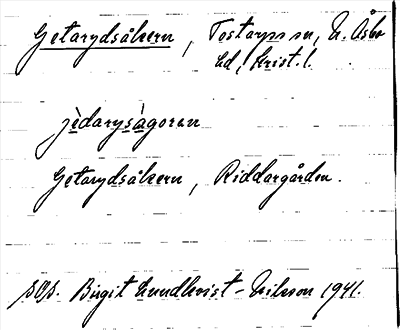 Getarydsåkern, Tostarps sn, N. Åsbo
hd, Krist. l.
jèdarysàgoren
Getarydsåkern, Riddargården.
Birgit Lundkvist-Nilsson 1941.